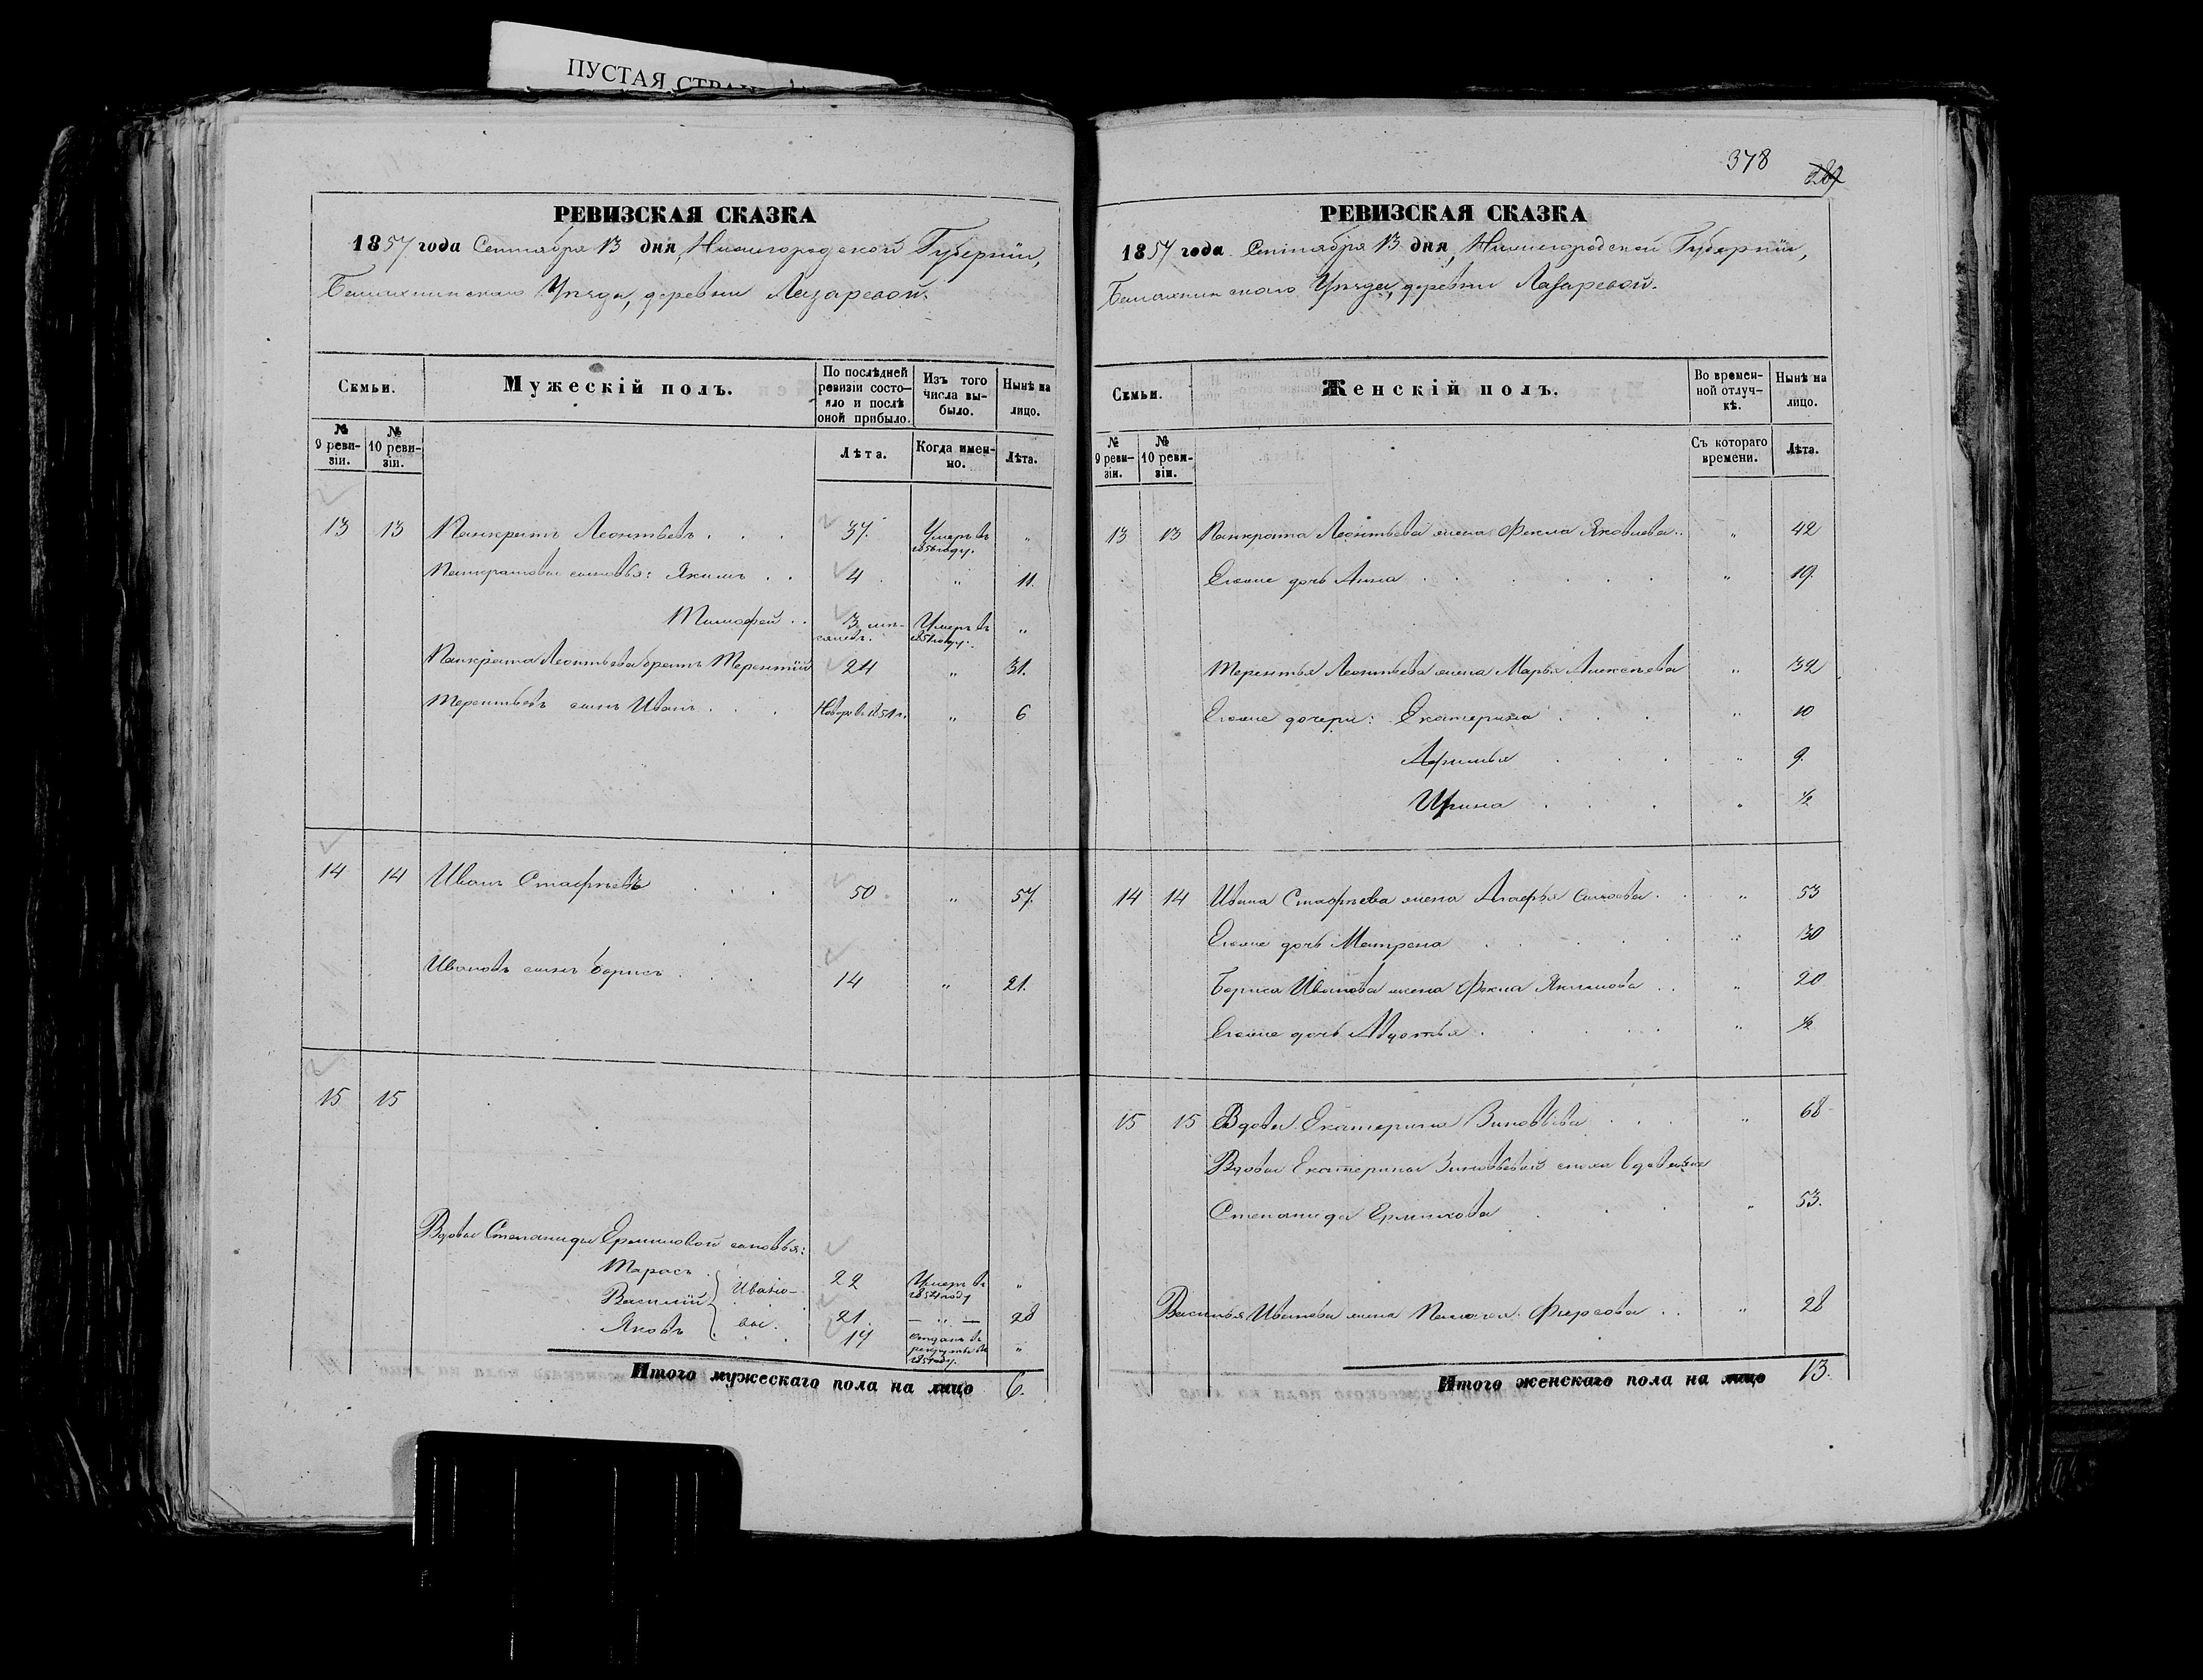 ПУСТАЯ СТРАН
РЕВИЗСКАЯ СКАЗКА
1857 года Сентября 13 дня, Нижегородской Губернии,
Балахнинскаго Уѣзда, деревни Лазаревой.
Семьи.
Мужескій полъ.
По послѣдней ревизіи состояло и послѣ оной прибыло.
Изъ того числа выбыло.
Нынѣ на лицо.
№ 9 ревизіи.
№ 10 ревизіи.
Лѣта.
Когда именно.
Лѣта.
13 13 Панкратъ Леонтьевъ . . . 37. Умеръ въ 1856 году. "
Панкратовы сыновья: Якимъ . . 4 " 11.
Тимофей . . 3 мѣсяцевъ. Умеръ въ 1851 году. "
Панкрата Леонтьева братъ Терентій 24 " 31.
Терентьевъ сынъ Иванъ . . . Новорж. въ 1851 г. " 6
14 14 Иванъ Стафѣевъ . . . 50 " 57.
Ивановъ сынъ Борисъ . . . 14 " 21.
15 15
Вдовы Степаниды Ермиловой сыновья:
Тарасъ . 22 Умеръ въ 1854 году "
Василій Ивано- 21. — " — 28
Яковъ вы. 14 отданъ въ рекруты въ 1854 году. "
Итого мужескаго пола на лицо 6.
378
РЕВИЗСКАЯ СКАЗКА
1857 года Сентября 13 дня, Нижегородской Губерніи,
Балахнинскаго Уѣзда, деревни Лазаревой.
Семьи.
Женскій полъ.
Во временной отлучкѣ.
Нынѣ на лицо.
№ 9 ревизіи.
№ 10 ревизіи.
Съ котораго времени.
Лѣта.
13 13 Панкрата Леонтьева жена Фекла Яковлева . . " 42
Егоже дочь Анна . . . " 19.
Терентья Леонтьева жена Марья Алексѣева " 32
Егоже дочери: Екатерина . . . " 10
Афимья . . . " 9.
Ирина . . . " ½
14 14 Ивана Стафѣева жена Агафья . " 53
Егоже дочь Матрена . . . " 30
Бориса Иванова жена Фекла Якимова . . " 20
Егоже дочь Авдотья . . . " ½
15 15 Вдова Екатерина Зиновьева . . . " 68
Вдовы Екатерины Зиновьевой сноха вдова
Степанида Ермилова . . . " 53.
Василья Иванова жена Пелагея Фирсова . . " 28
Итого женскаго пола на лицо 13.